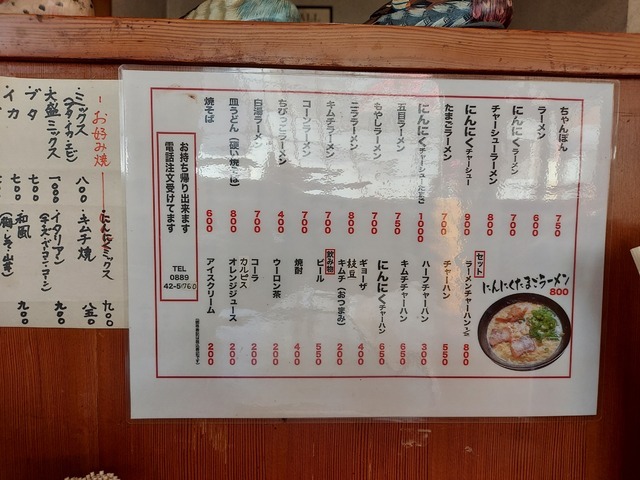 ちゃんぽん 750
ラーメン 600
にんにくラーメン 700
チャーシューラーメン 800
にんにくチャーシュー 900
たまごラーメン 700
にんにくチャーシューたまご 1000
五目ラーメン 750
もやしラーメン 700
ニララーメン 800
キムチラーメン 700
コーンラーメン 700
ちびっこラーメン 400
白湯ラーメン 700
皿うどん(硬い焼そば) 800
焼そば 600
お持ち帰り出来ます
電話注文受けてます
TEL
0889
42-5760
にんにくたまごラーメン
800
セット
ラーメンチャーハン 800
チャーハン 550
ハーフチャーハン 300
キムチチャーハン 650
にんにくチャーハン 650
ギョーザ 400
枝豆
キムチ(おつまみ) 200
飲み物
ビール 550
焼酎 400
ウーロン茶 200
コーラ
カルピス 200
オレンジジュース 200
アイスクリーム 200
お好み焼
ミックス
(ブタ・イカ・エビ) 八〇〇
大盛ミックス 一〇〇〇
ブタ 七〇〇
イカ 七〇〇
にんにくミックス 九〇〇
キムチ焼 八五〇
イタリアン 九〇〇
和風 九〇〇